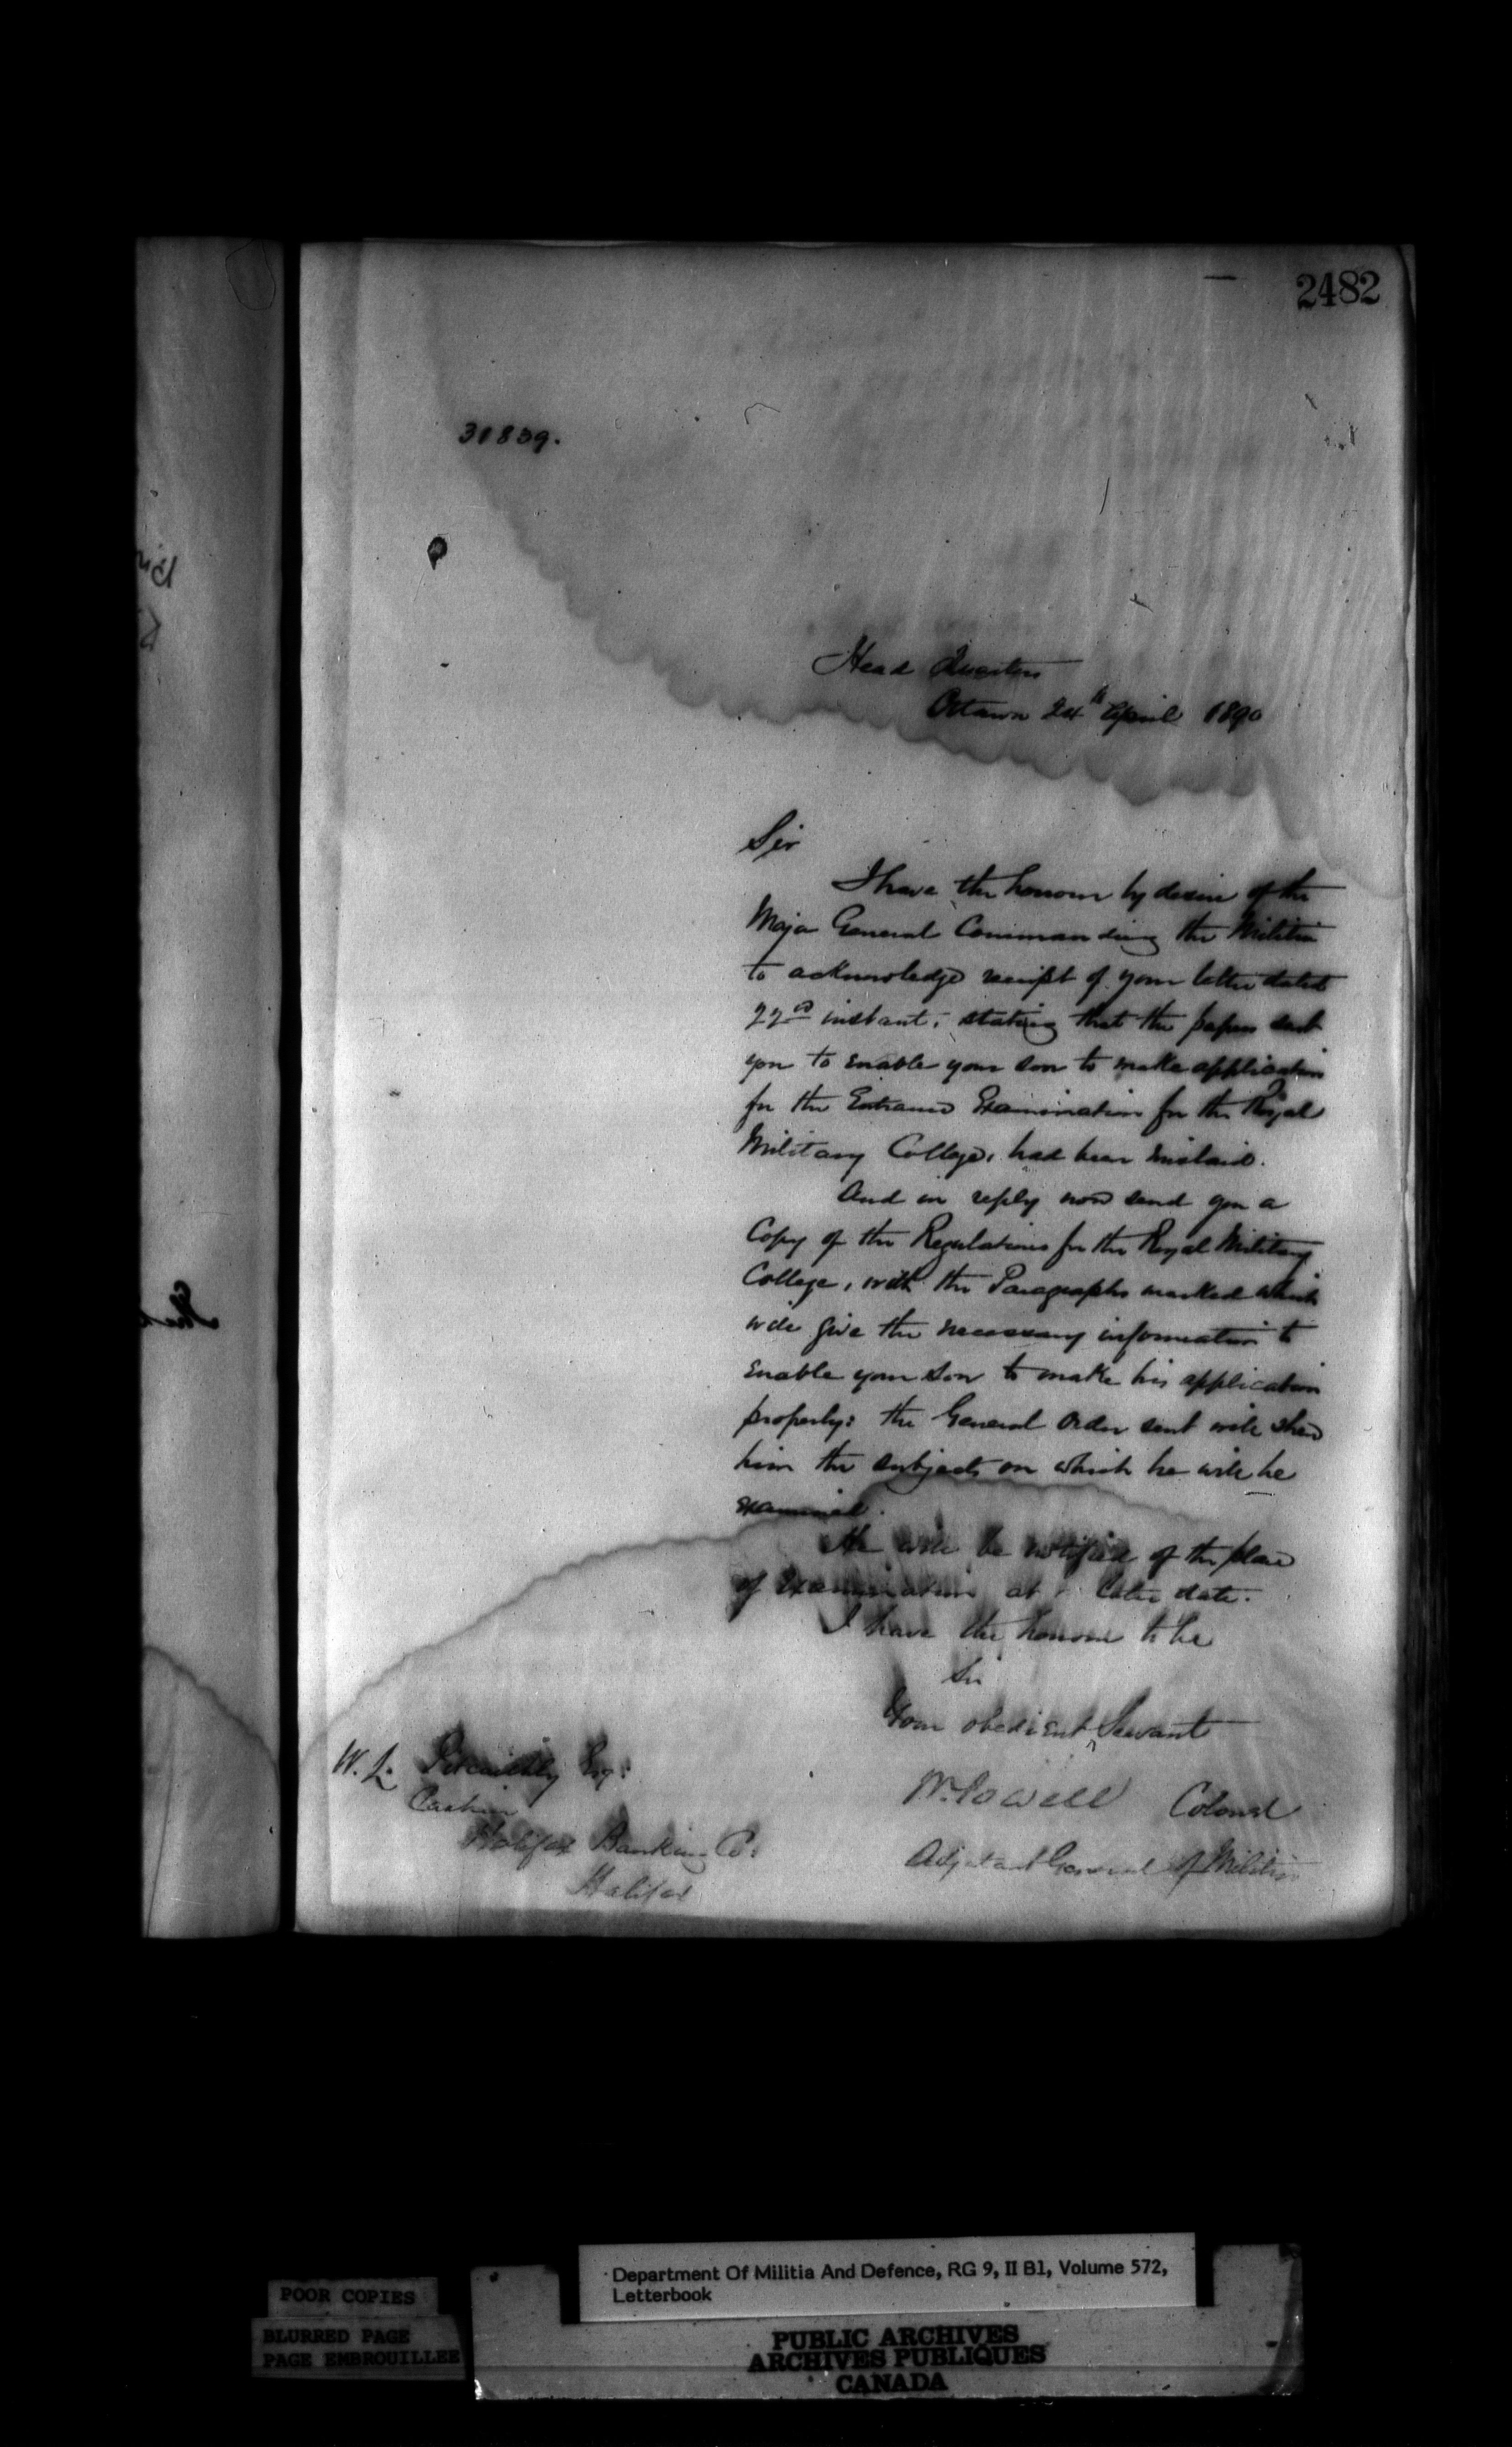 2482
31839.
Head Quarters
Ottawa 24th April 1890
Sir
I have the honour by desire of the
Major General Commanding the Militia
to acknowledge receipt of your letter dated
22nd instant, stating that the papers sent
you to enable your son to make application
for the Entrance Examination for the Royal
Military College, had been mislaid.
And in reply now send you a
Copy of the Regulations for the Royal Military
College, with the Paragraphs marked which
will give the necessary information to
enable your son to make his application
properly: the General Order sent will shew
him the subjects on which he will be
examined.
He will be notified of the place
of Examination at a later date.
I have the honour to be
Sir
Your obedient Servant
W. Powell Colonel
Adjutant General of Militia
W. L. Pitcaithly Esq:
Cashier
Halifax Banking Co:
Halifax
Department Of Militia And Defence, RG 9, II B1, Volume 572,
Letterbook
POOR COPIES
BLURRED PAGE
PAGE EMBROUILLEE
PUBLIC ARCHIVES
ARCHIVES PUBLIQUES
CANADA